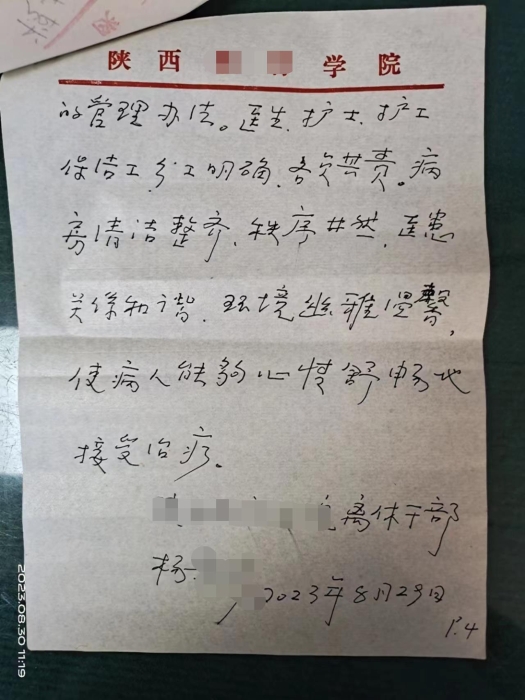 陕西 学院
的管理办法。医生、护士、护工
保洁工分工明确、各负其责。病
房清洁整齐、秩序井然、医患
关系和谐、环境幽雅温馨，
使病人能够心情舒畅地
接受治疗。
离休干部
杨
2023年8月29日
P.4
2023.08.30 11:19